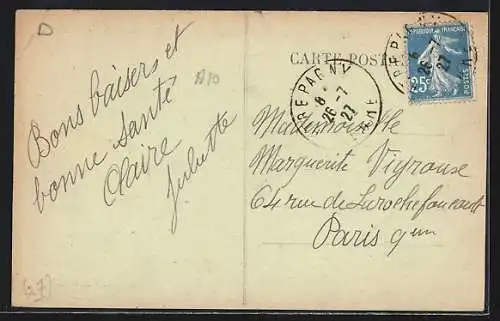 D
A10
Bons baisers et
bonne santé
Claire
Juliette
(27)
CARTE POST
REPAGNY
8
26-7
27
EURE
REPUBLIQUE FRANÇAISE
25c
POSTES
Mademoiselle
Marguerite
64 rue de Larochefoucault
Paris 9em